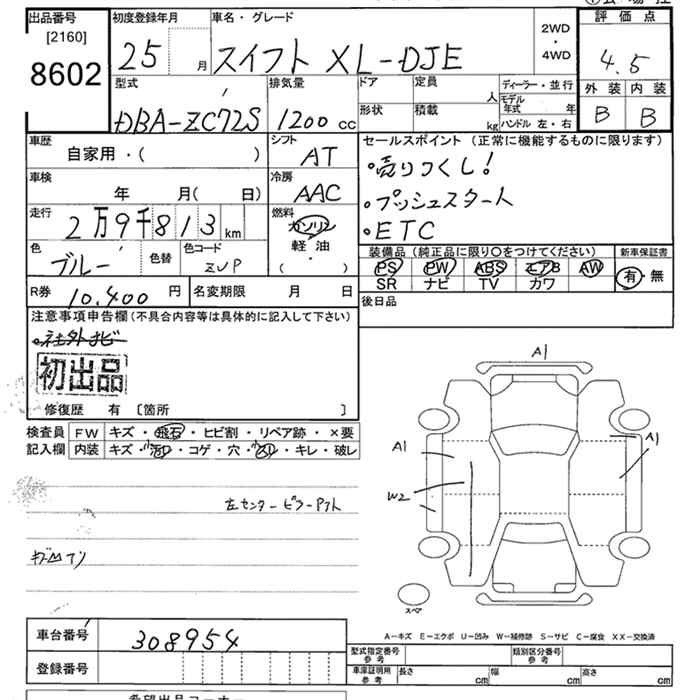 出品番号
[2160]
8602
初度登録年月
25 月
車名・グレード
スイフト XL-DJE
2WD
・
4WD
評 価 点
4.5
外 装 内 装
B B
型式
DBA-ZC72S
排気量
1200 cc
ドア
定員
人
形状
積載
kg
ディーラー・並行
モデル年式 年
ハンドル 左・右
車歴
自家用・( )
シフト
AT
車検
年 月( 日)
冷房
AAC
走行
2万9千813 km
燃料
ガソリン
軽・油
( ・ )
色
ブルー
色替
色コード
ZVP
R券
10.400 円
名変期限 月 日
セールスポイント (正常に機能するものに限ります)
・売りつくし!
・プッシュスタート
・ETC
装備品 (純正品に限り○をつけてください)
PS PW ABS エアB AW
SR ナビ TV カワ
新車保証書
有・無
後日品
注意事項申告欄(不具合内容等は具体的に記入して下さい)
・社外ナビ
初出品
修復歴 有 [箇所 ]
検査員
記入欄
FW キズ・飛石・ヒビ割・リペア跡・×要
内装 キズ・小汚・コゲ・穴・・キレ・破レ
左センターピラー
A1
A1
A1
W2
スペア
A-キズ E-エクボ U-凹み W-補修跡 S-サビ C-腐食 XX-交換済
車台番号
308954
登録番号
型式指定番号
参考
類別区分番号
参考
車庫証明用
参考
長さ cm 幅 cm 高さ cm
希望出品コーナー